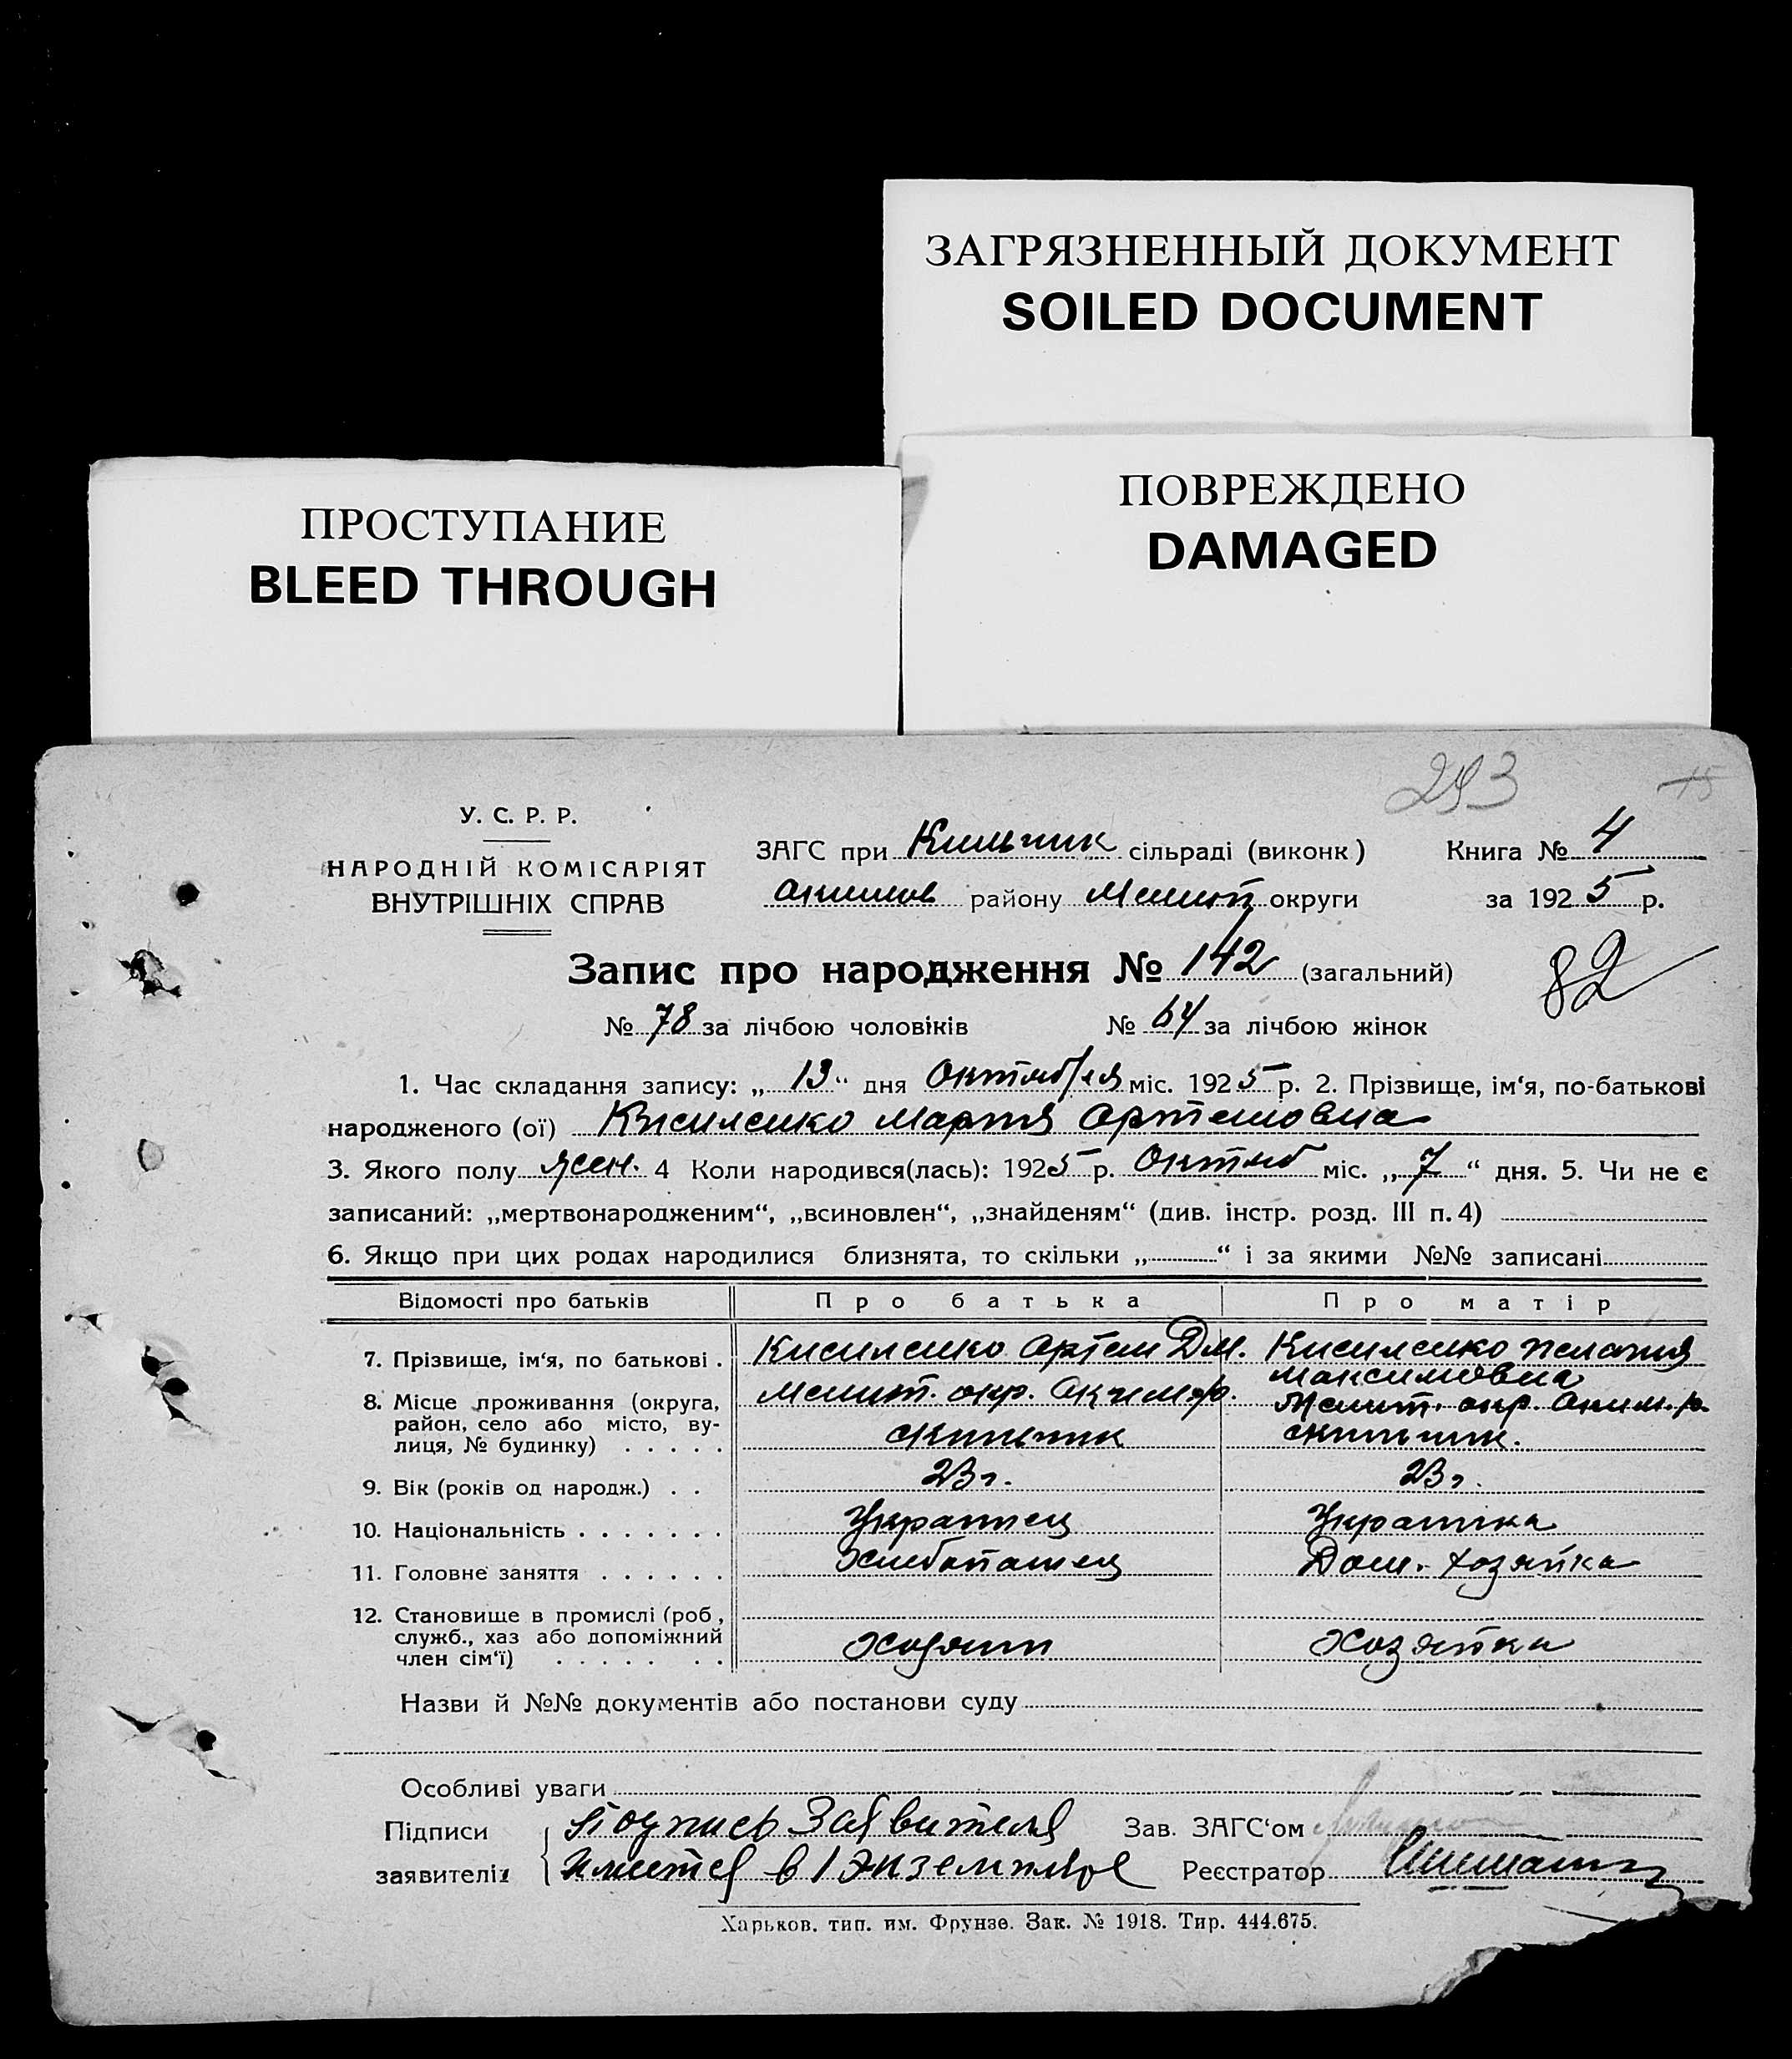 ЗАГРЯЗНЕННЫЙ ДОКУМЕНТ
SOILED DOCUMENT
ПОВРЕЖДЕНО
DAMAGED
ПРОСТУПАНИЕ
BLEED THROUGH
293
15
У. С. Р. Р.
НАРОДНІЙ КОМІСАРІЯТ
ВНУТРІШНІХ СПРАВ
ЗАГС при Кильчик сільраді (виконк) Книга № 4
Акимов району Мелит округи за 1925 р.
Запис про народження № 142 (загальний)
82
№ 78 за лічбою чоловіків № 64 за лічбою жінок
1. Час складання запису: „13“ дня Октября міс. 1925 р. 2. Прізвище, ім‘я, по-батькові
народженого (ої) Кисиленко Мария Артемовна
3. Якого полу жен. 4 Коли народився(лась): 1925 р. Октяб міс. „7“ дня. 5. Чи не є
записаний: „мертвонародженим“, „всиновлен“, „знайденям“ (див. інстр. розд. III п. 4)
6. Якщо при цих родах народилися близнята, то скільки „ “ і за якими №№ записані
Відомості про батьків Про батька Про матір
7. Прізвище, ім‘я, по батькові . Кисиленко Артем Дм. Кисиленко Пелагия
Максимовна
8. Місце проживання (округа, Мелит. окр. Аким. р. Мелит. окр. Аким. р.
район, село або місто, ву-
лиця, № будинку) . . . . . Кильчик Кильчик.
9. Вік (років од народж.) . . 23 г. 23 г.
10. Національність . . . . . . . Украинец Украинка
11. Головне заняття . . . . . . Хлебопашец Дом. хозяйка
12. Становище в промислі (роб,
служб., хаз або допоміжний
член сім‘ї) . . . . . . . Хозяин Хозяйка
Назви й №№ документів або постанови суду
Особливі уваги
Підписи Подпись Заявителя Зав. ЗАГС‘ом
заявителів имеется в 1 экземпляре Реєстратор
Харьков. тип. им. Фрунзе. Зак. № 1918. Тир. 444.675.